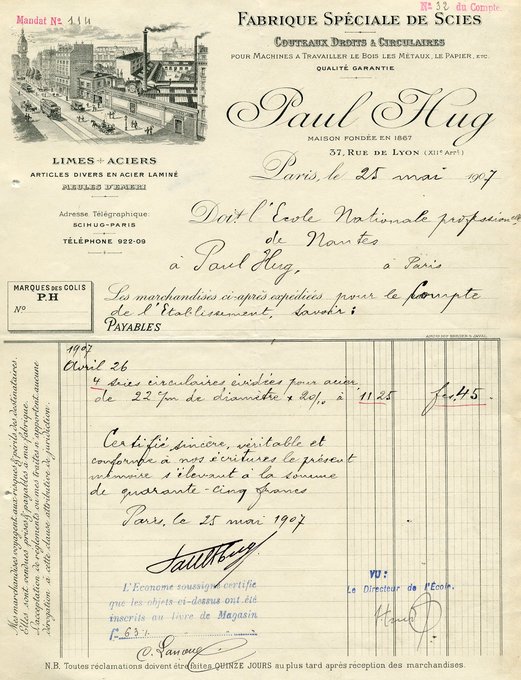 Mandat No 114
No 32 du Compte
FABRIQUE SPÉCIALE DE SCIES
COUTEAUX DROITS & CIRCULAIRES
POUR MACHINES A TRAVAILLER LE BOIS LES MÉTAUX, LE PAPIER, ETC.
QUALITÉ GARANTIE
Paul Hug
MAISON FONDÉE EN 1867
37, RUE DE LYON (XIIe Arrt)
LIMES + ACIERS
ARTICLES DIVERS EN ACIER LAMINÉ
MEULES D'EMERI
Paris, le 25 mai 1907
Adresse Télégraphique:
SCIHUG-PARIS
TÉLÉPHONE 922-09
Doit l'Ecole Nationale professionelle
de Nantes
à Paul Hug, à Paris
MARQUES DES COLIS
P.H
No
Les marchandises ci-après expédiées pour le Compte
de l'Etablissement, savoir:
PAYABLES
1907
Avril 26
4 scies circulaires évidées pour acier
de 22 c/m de diamètre x 20/10 à 11 25 fcs 45
Certifié sincère, véritable et
conforme à nos écritures le présent
mémoire s'élevant à la somme
de quarante-cinq francs
Paris, le 25 mai 1907
Paul Hug
L'Econome soussigné certifie
que les objets ci-dessus ont été
inscrits au livre de Magasin
fo 63
VU:
Le Directeur de l'École.
Mes marchandises voyagent aux risques & périls des destinataires.
Elles sont vendues, prises & payables à ma fabrique.
L'acceptation de règlements ou mes traites n'apportent aucune
dérogation à cette clause attributive de juridiction.
N.B. Toutes réclamations doivent être faites QUINZE JOURS au plus tard après réception des marchandises.